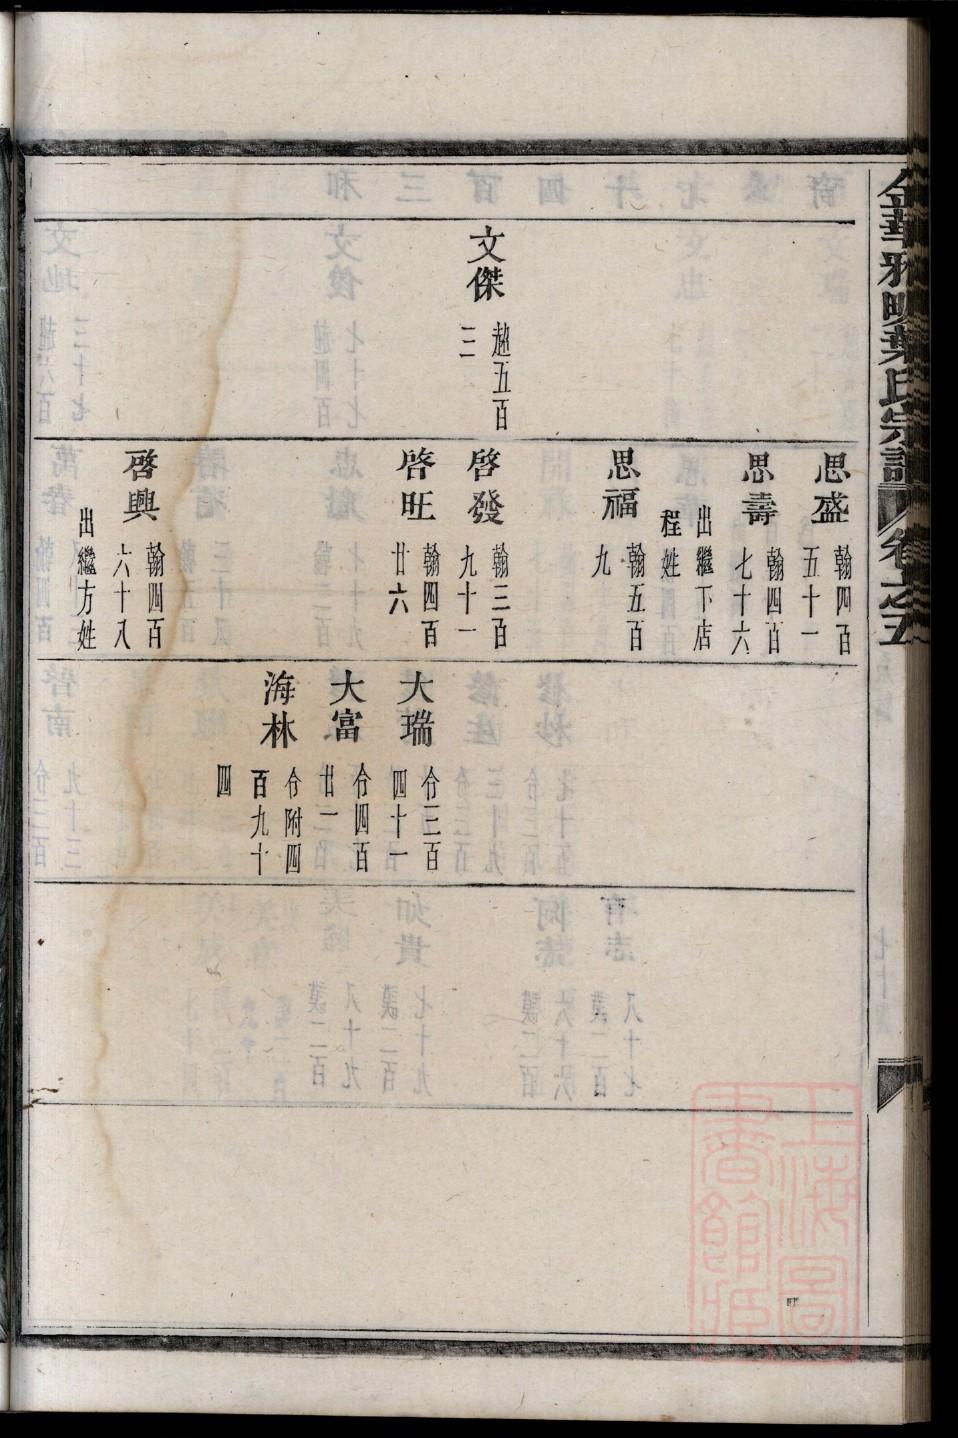 金華雅畈葉氏宗譜
卷之五
文傑
趙五百
三
思盛
翰四百
五十一
思壽
翰四百
七十六
出繼下店
程姓
思福
翰五百
九
啓發
翰三百
九十一
啓旺
翰四百
廿六
啓興
翰四百
六十八
出繼方姓
大瑞
㑹三百
四十一
大富
㑹四百
廿一
海林
㑹附四
百九十
四
上海圖
書館藏